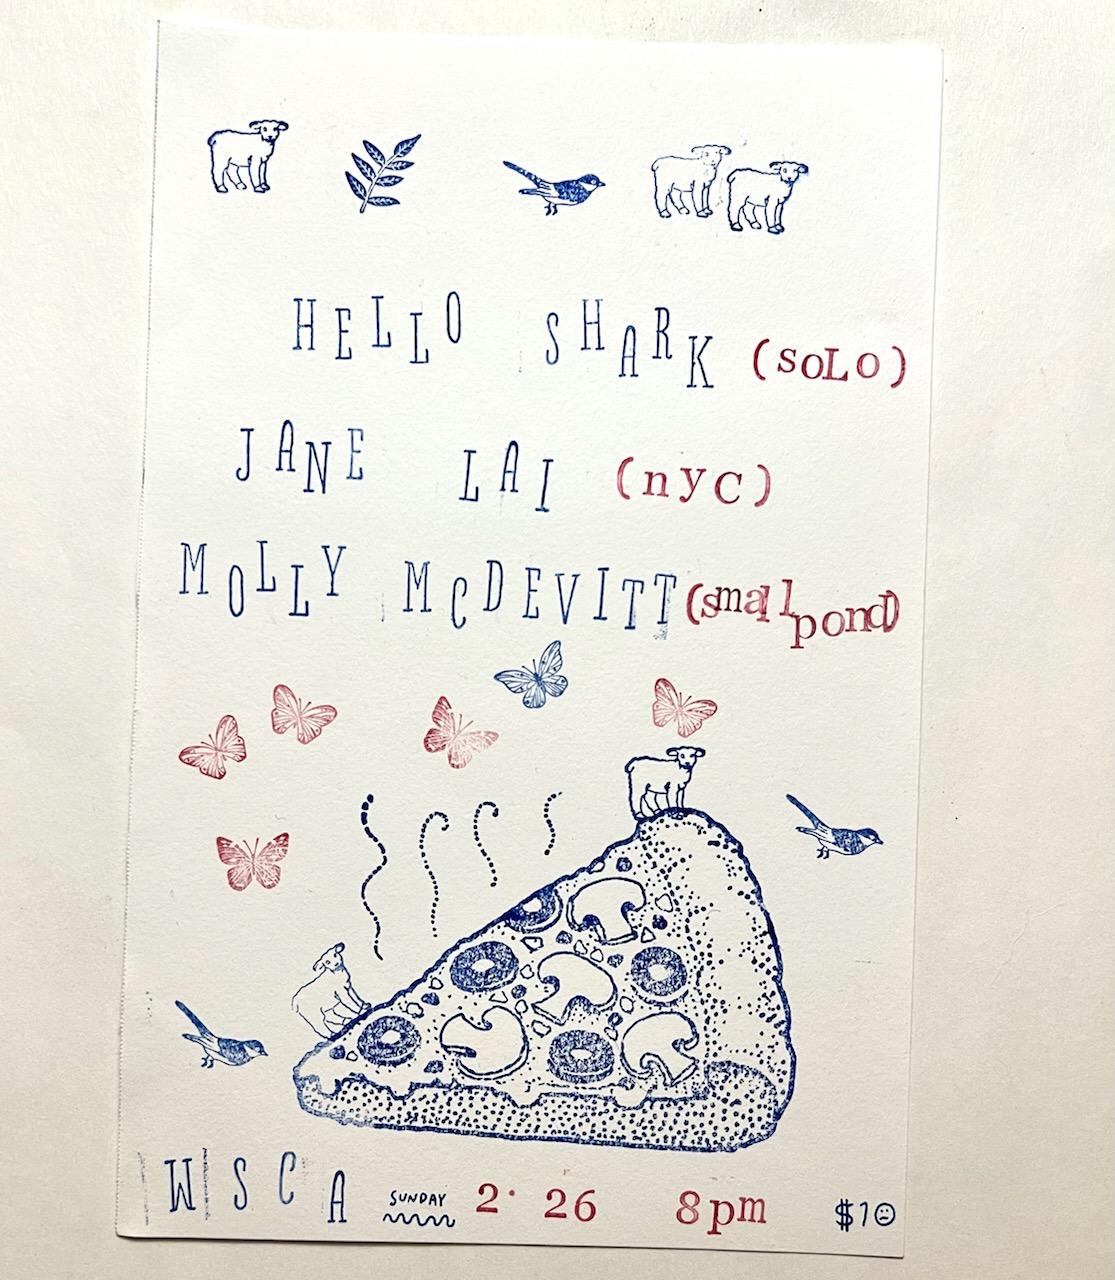 HELLO SHARK (soLo)
JANE LAI (nyc)
MOLLY McDEVITT (small pond)
WSCA SUNDAY 2· 26 8pm $10